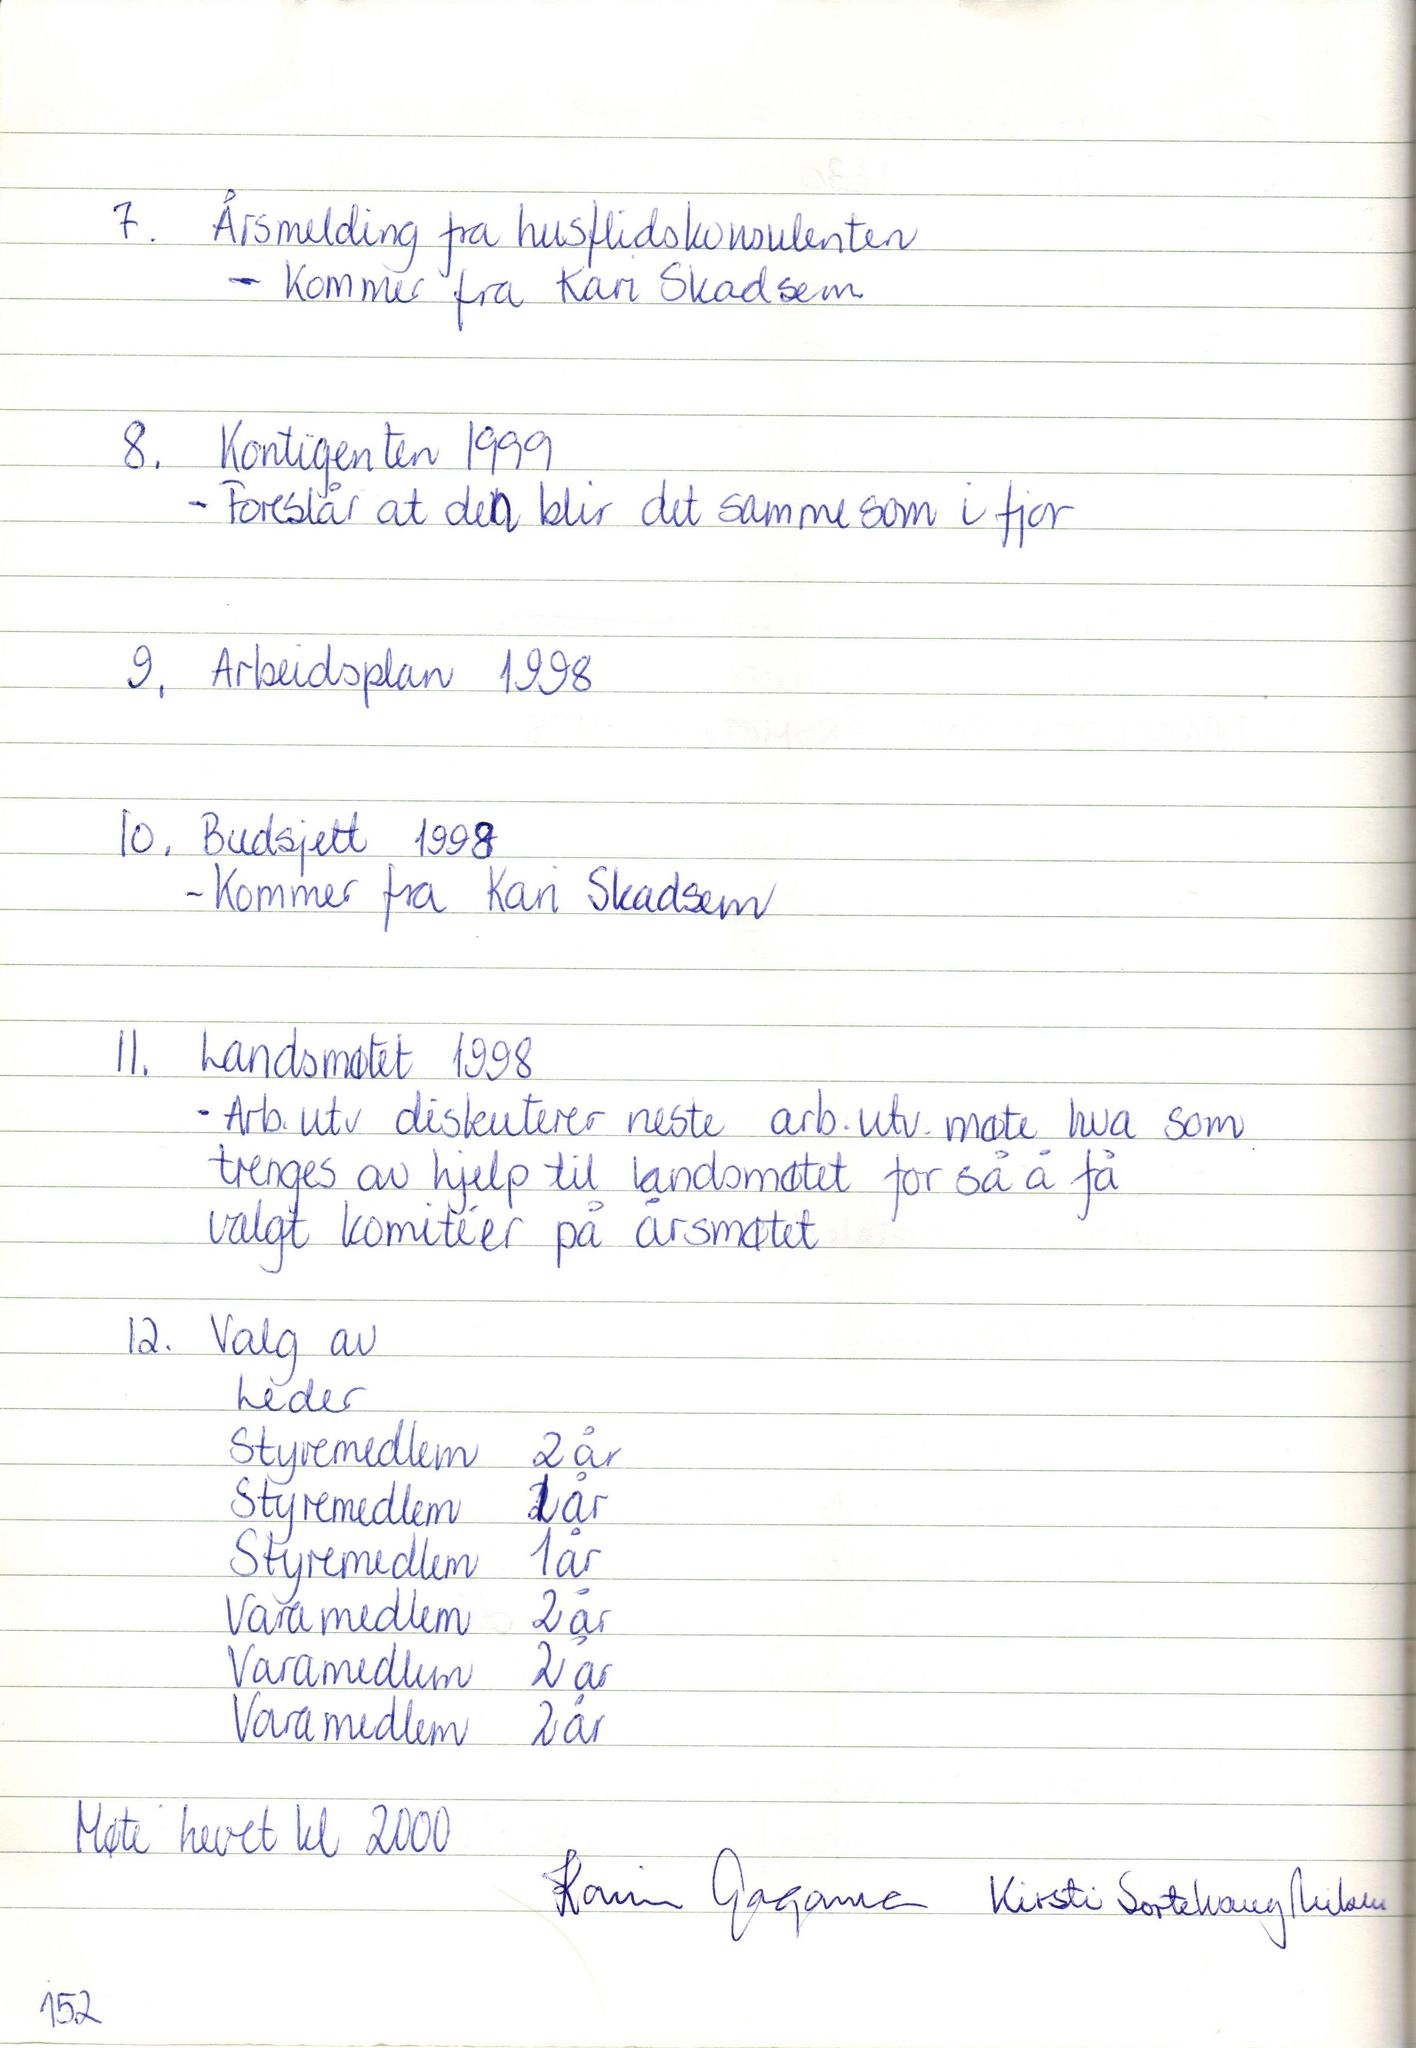 7. Årsmelding fra husflidskonsulenten
- Kommer fra Kari Skadsem
8. Kontigenten 1999
- Foreslår at den blir det samme som i fjor
9. Arbeidsplan 1998
10. Budsjett 1998
- Kommer fra Kari Skadsem
11. Landsmøtet 1998
- Arb.utv diskuterer neste arb.utv. møte hva som
trenges av hjelp til landsmøtet for så å få
valgt komitéer på årsmøtet
12. Valg av
Leder
Styremedlem 2 år
Styremedlem 1 år
Styremedlem 1 år
Varamedlem 2 år
Varamedlem 2 år
Varamedlem 2 år
Møte hevet kl 2000
Karin Kirsti
152